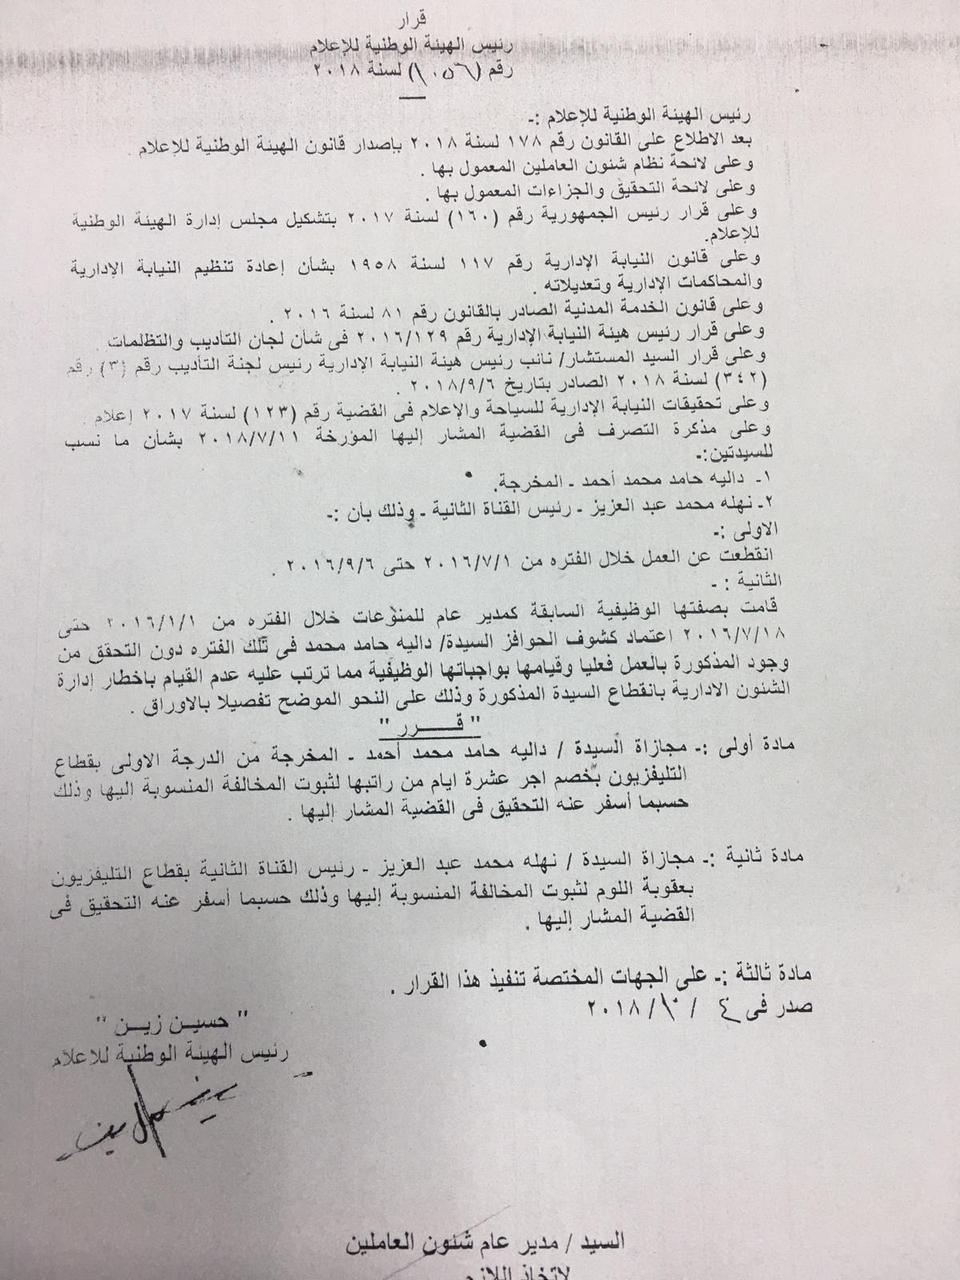 قرار
رئيس الهيئة الوطنية للإعلام
رقم (١٠٥٦) لسنة ٢٠١٨
رئيس الهيئة الوطنية للإعلام :-
بعد الاطلاع على القانون رقم ١٧٨ لسنة ٢٠١٨ بإصدار قانون الهيئة الوطنية للإعلام .
وعلى لائحة نظام شئون العاملين المعمول بها .
وعلى لائحة التحقيق والجزاءات المعمول بها .
وعلى قرار رئيس الجمهورية رقم (١٦٠) لسنة ٢٠١٧ بتشكيل مجلس إدارة الهيئة الوطنية
للإعلام.
وعلى قانون النيابة الإدارية رقم ١١٧ لسنة ١٩٥٨ بشأن إعادة تنظيم النيابة الإدارية
والمحاكمات الإدارية وتعديلاته .
وعلى قانون الخدمة المدنية الصادر بالقانون رقم ٨١ لسنة ٢٠١٦ .
وعلى قرار رئيس هيئة النيابة الإدارية رقم ٢٠١٦/١٢٩ فى شأن لجان التأديب والتظلمات .
وعلى قرار السيد المستشار/ نائب رئيس هيئة النيابة الإدارية رئيس لجنة التأديب رقم (٣) رقم
(٣٤٢) لسنة ٢٠١٨ الصادر بتاريخ ٢٠١٨/٩/٦ .
وعلى تحقيقات النيابة الإدارية للسياحة والإعلام فى القضية رقم (١٢٣) لسنة ٢٠١٧ إعلام .
وعلى مذكرة التصرف فى القضية المشار إليها المؤرخة ٢٠١٨/٧/١١ بشأن ما نسب
للسيدتين:-
١- داليه حامد محمد أحمد - المخرجة.
٢- نهله محمد عبد العزيز - رئيس القناة الثانية - وذلك بأن :-
الاولى :-
انقطعت عن العمل خلال الفتره من ٢٠١٦/٧/١ حتى ٢٠١٦/٩/٦ .
الثانية : -
قامت بصفتها الوظيفية السابقة كمدير عام للمنوعات خلال الفتره من ٢٠١٦/١/١ حتى
٢٠١٦/٧/١٨ اعتماد كشوف الحوافز السيدة/ داليه حامد محمد فى تلك الفتره دون التحقق من
وجود المذكورة بالعمل فعليا وقيامها بواجباتها الوظيفية مما ترتب عليه عدم القيام باخطار إدارة
الشئون الادارية بانقطاع السيدة المذكورة وذلك على النحو الموضح تفصيلا بالاوراق .
" قـــــرر "
مادة أولى :- مجازاة السيدة / داليه حامد محمد أحمد - المخرجة من الدرجة الاولى بقطاع
التليفزيون بخصم اجر عشرة ايام من راتبها لثبوت المخالفة المنسوبة إليها وذلك
حسبما أسفر عنه التحقيق فى القضية المشار إليها .
مادة ثانية :- مجازاة السيدة / نهله محمد عبد العزيز - رئيس القناة الثانية بقطاع التليفزيون
بعقوبة اللوم لثبوت المخالفة المنسوبة إليها وذلك حسبما أسفر عنه التحقيق فى
القضية المشار إليها .
مادة ثالثة :- على الجهات المختصة تنفيذ هذا القرار .
صدر فى ٤ / ١٠ / ٢٠١٨
" حسين زين "
رئيس الهيئة الوطنية للاعلام
السيد / مدير عام شئون العاملين
لاتخاذ اللازم